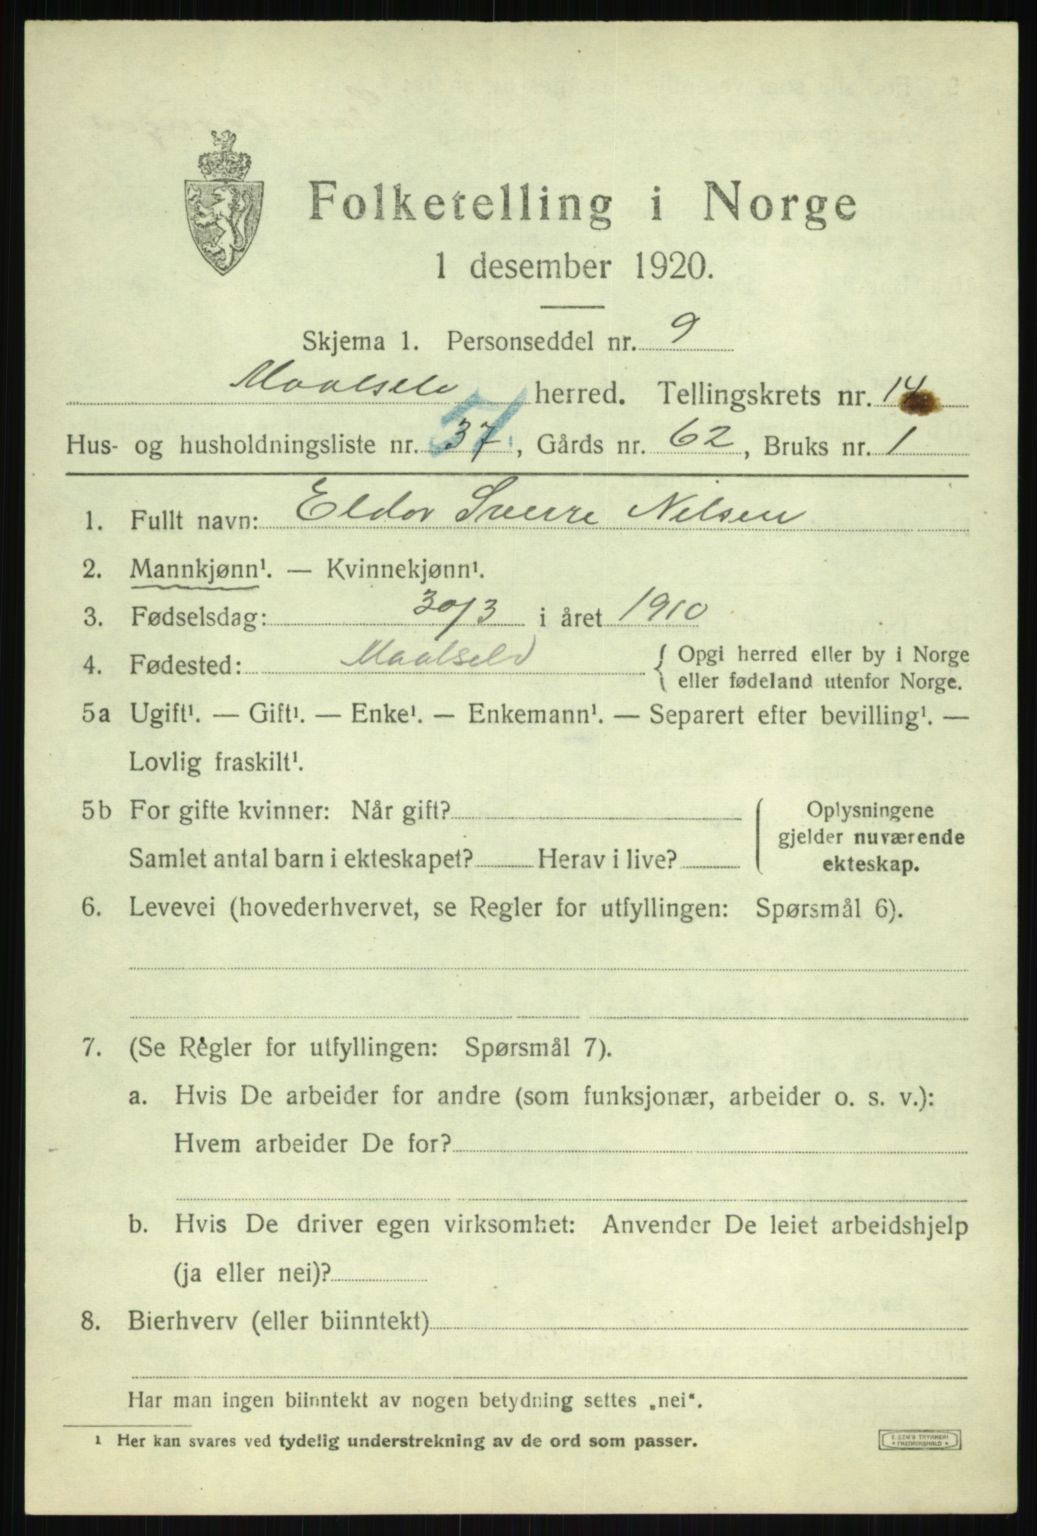 Folketelling i Norge
1 desember 1920.
Skjema 1. Personseddel nr. 9
Maalselv herred. Tellingskrets nr. 14
Hus- og husholdningsliste nr. 37, Gårds nr. 62, Bruks nr. 1
51.
1. Fullt navn: Eldor Sverre Nilsen
2. Mannkjønn¹. — Kvinnekjønn¹.
3. Fødselsdag: 30/3 i året 1910
4. Fødested: Maalselv { Opgi herred eller by i Norge
eller fødeland utenfor Norge.
5a Ugift¹. — Gift¹. — Enke¹. — Enkemann¹. — Separert efter bevilling¹. —
Lovlig fraskilt¹.
5b For gifte kvinner: Når gift? { Oplysningene
gjelder nuværende
Samlet antal barn i ekteskapet? Herav i live? ekteskap.
6. Levevei (hovederhvervet, se Regler for utfyllingen: Spørsmål 6).
7. (Se Regler for utfyllingen: Spørsmål 7).
a. Hvis De arbeider for andre (som funksjonær, arbeider o. s. v.):
Hvem arbeider De for?
b. Hvis De driver egen virksomhet: Anvender De leiet arbeidshjelp
(ja eller nei)?
8. Bierhverv (eller biinntekt)
Har man ingen biinntekt av nogen betydning settes „nei“.
¹ Her kan svares ved tydelig understrekning av de ord som passer.